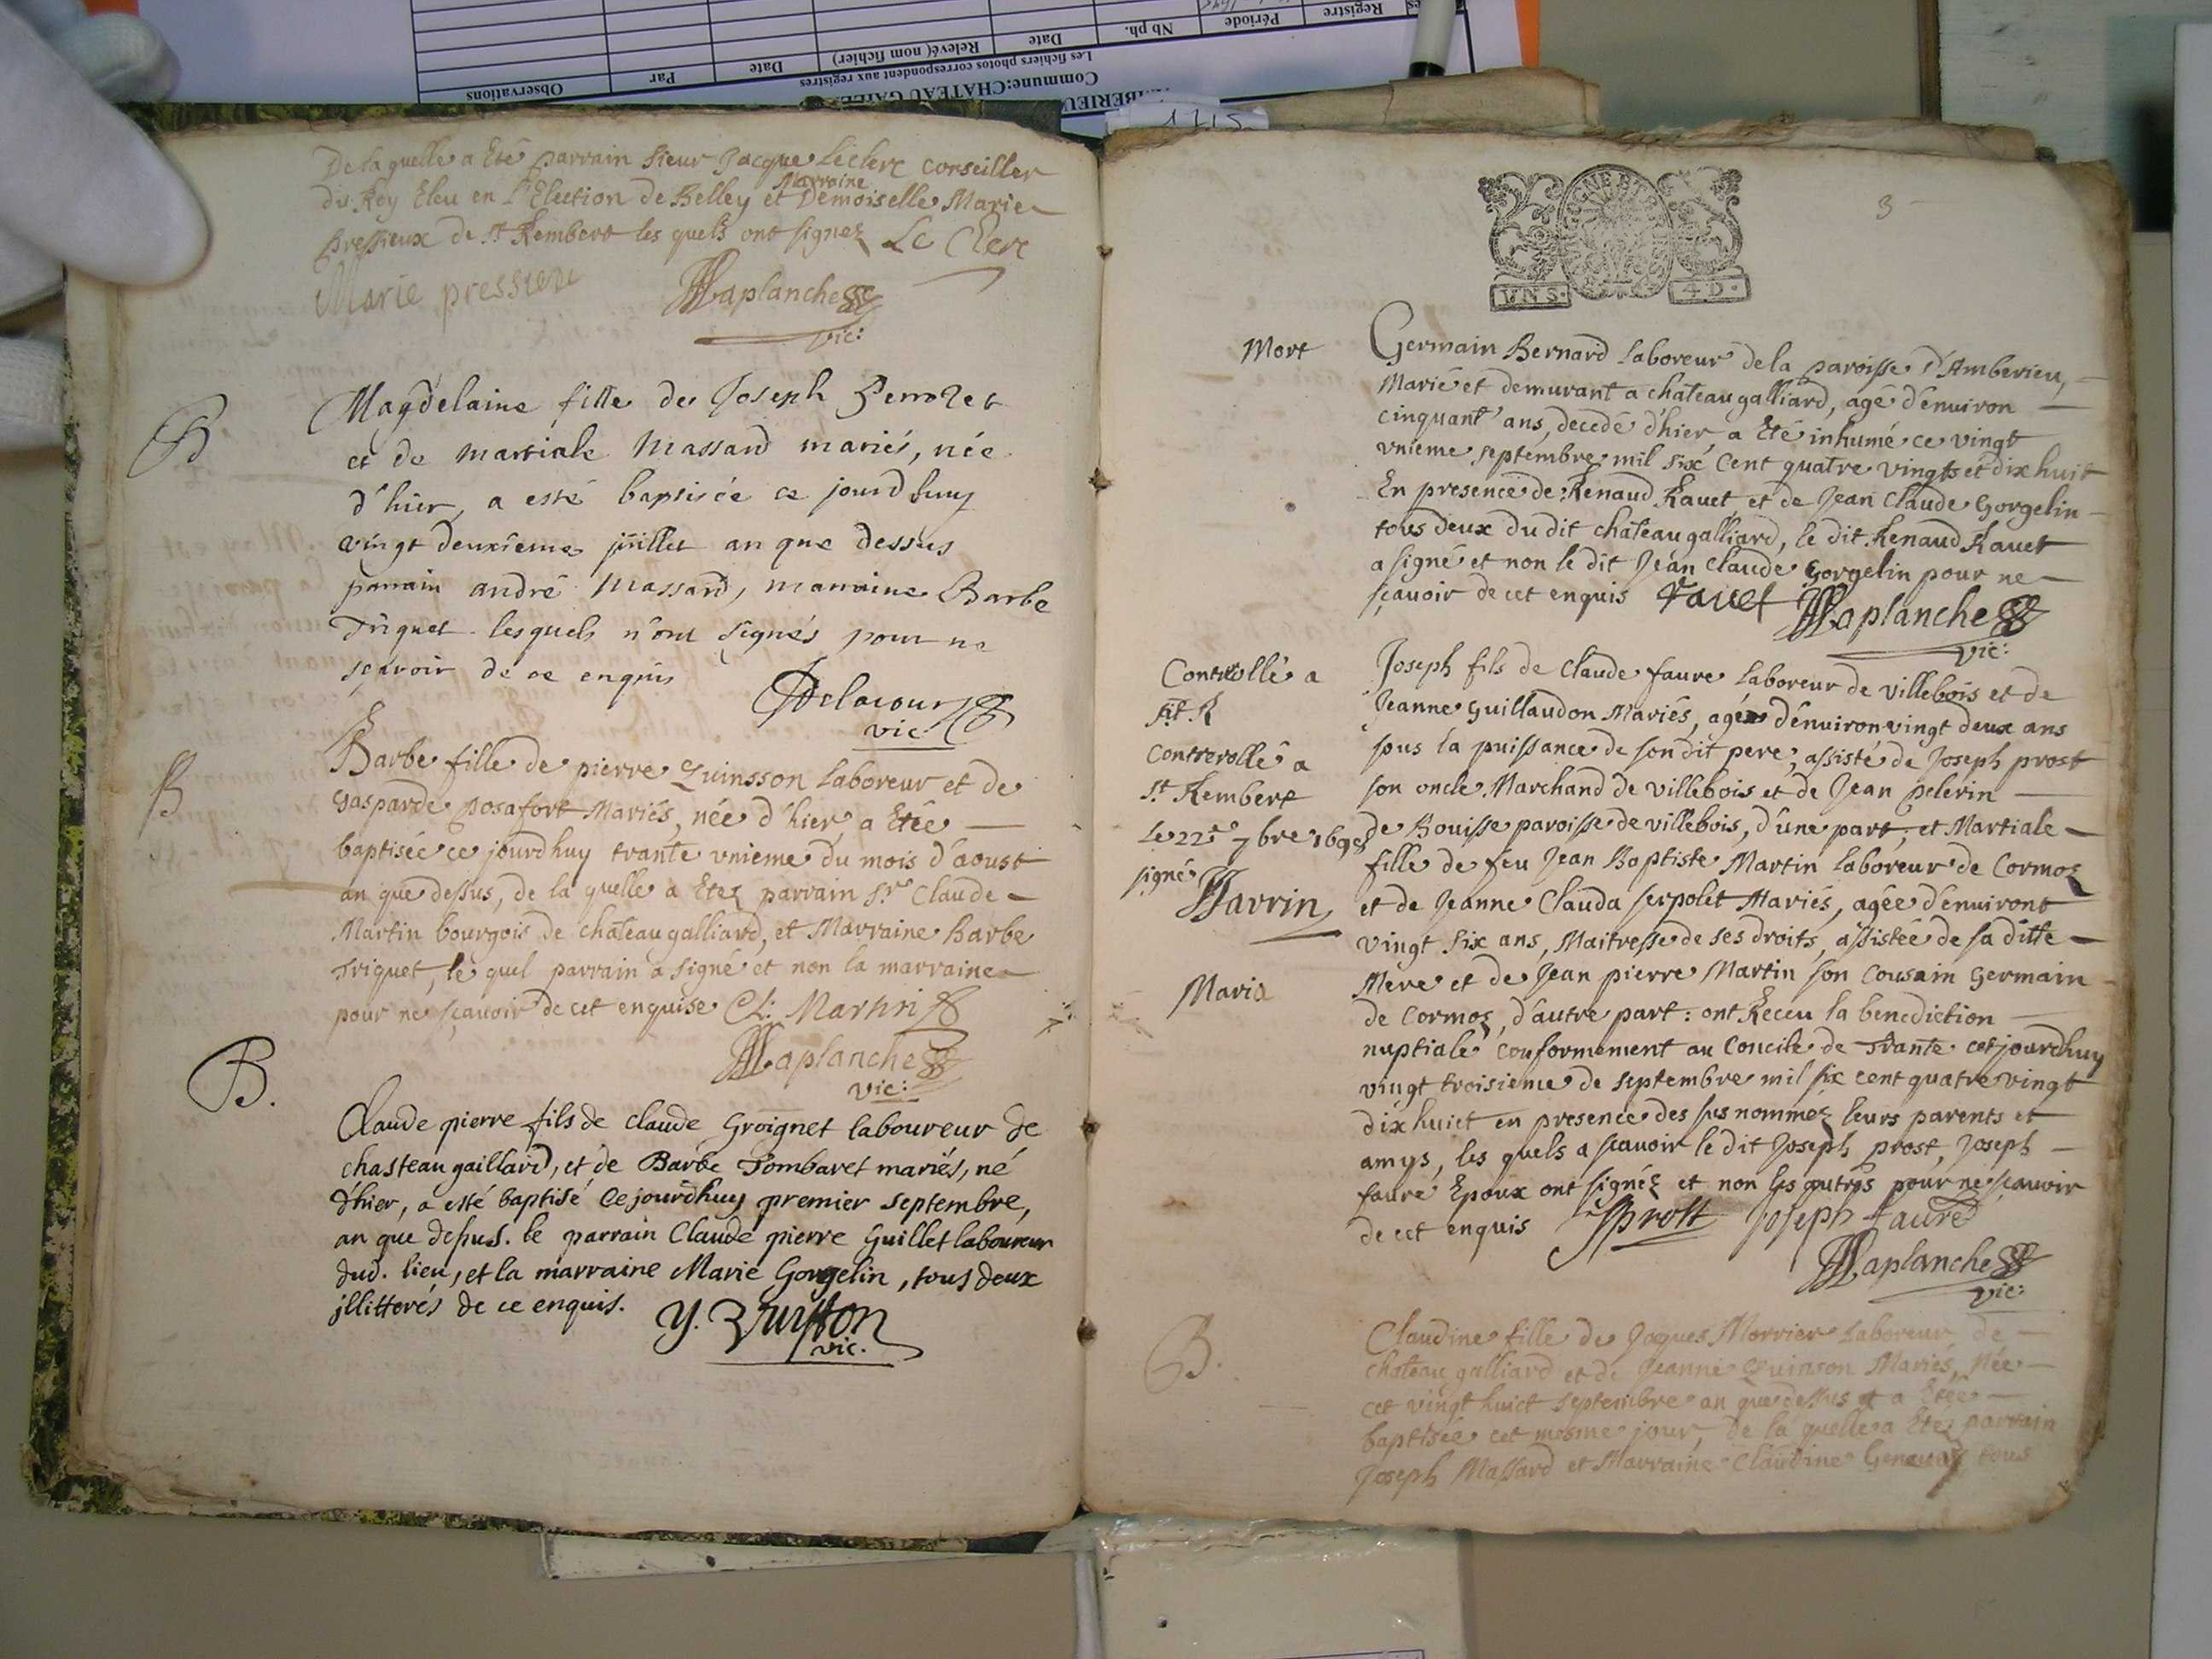 Observations
Par
Date
Relevé( nom fichier)
Date
Nb ph.
Période
Registre
Les fichiers photos correspondent aux registres
Commune:CHATEAU GAILL
MBERIEU
1715
De la quelle a Eté parrain sieur Jacque Leclerc conseiller
du Roy Eleu en l'Election de Belley et Marraine Demoiselle Marie
pressieux de St Rembert les quels ont signez Le Clerc
Marie pressieux
Laplanche
vic:
B
Magdelaine fille de Joseph
et de martiale Massard mariés, née
d'hier, a esté baptisée ce jourdhuy
vingt deuxieme juillet an que dessus
parrain andré Massard, marraine Barbe
Triquet lesquels n'ont signés pour ne
sçavoir de ce enquis
Delacour
vic
B
Barbe fille de pierre Quinsson laboreur et de
gasparde posafort Mariés, née d'hier, a Etée
baptisée ce jourdhuy trante vnieme du mois d'aoust
an que dessus, de la quelle a Etez parrain Sr Claude
Martin bourgois de chateaugalliard, et Marraine Barbe
Triquet, le quel parrain a signé et non la marraine
pour ne sçavoir de cet enquise Cl: Martin
Laplanche
vic:
B.
Claude pierre fils de claude Groignet laboureur de
chasteaugaillard, et de Barbe Pombaret mariés, né
d'hier, a esté baptisé cejourdhuy premier septembre,
an que dessus. le parrain Claude pierre Guillet laboureur
dud. lieu, et la marraine Marie Gorgelin, tous deux
jllitterés de ce enquis.
vic.
3
VN S.
4 D.
Mort
Germain Bernard laboreur de la paroisse d'Amberieu,
Marié et demurant a chateaugalliard, agé d'enuiron
cinquant' ans, decedé d'hier, a Eté inhumé ce vingt
vnieme septembre mil six cent quatre vingts et dix huit
En presence de Renaud Rauet et de Jean Claude Gorgelin
tous deux du dit chateaugalliard, le dit Renaud Rauet
a signé et non le dit Jean Claude Gorgelin pour ne
sçauoir de cet enquis Rauet Laplanche
vic:
Controllé a
St R
Controrollé a
St Rembert
Le 22e 7bre 1698
signé
Jarrin
Joseph fils de Claude faure laboreur de villebois et de
Jeanne Guillaudon Mariés, agé d'enuiron vingt deux ans
sous la puissance de son dit pere, assisté de Joseph prost
son oncle Marchand de villebois et de Jean pelerin
de Bouisse paroisse de villebois, d'une part; et Martiale
fille de feu Jean Baptiste Martin laboreur de Cormoz
et de Jeanne Clauda serpolet Mariés, agée d'enuiront
vingt six ans, Maitresse de ses droits, assistée de sa ditte
Mere et de Jean pierre Martin son Cousain germain
Maria
de Cormoz, d'autre part: ont Receu la benediction
nuptiale conformement au Concile de Trante cet jourdhuy
vingt troisieme de septembre mil six cent quatre vingt
dix huict en presence des sus nommez leurs parents et
amys, les quels a scauoir le dit Joseph prost, Joseph
faure Epoux ont signéz et non les autres pour ne scauoir
de cet enquis Jprost Joseph faure
Laplanche
vic:
B.
Claudine fille de Jaques Morrier Laboreur de
chateau galliard et de Jeanne Quinson Mariés, Née
cet vingt huict septembre an que dessus et a Etée
baptisée cet mesme jour, de la quelle a Etez parrain
Joseph Massard et Marraine Claudine tous